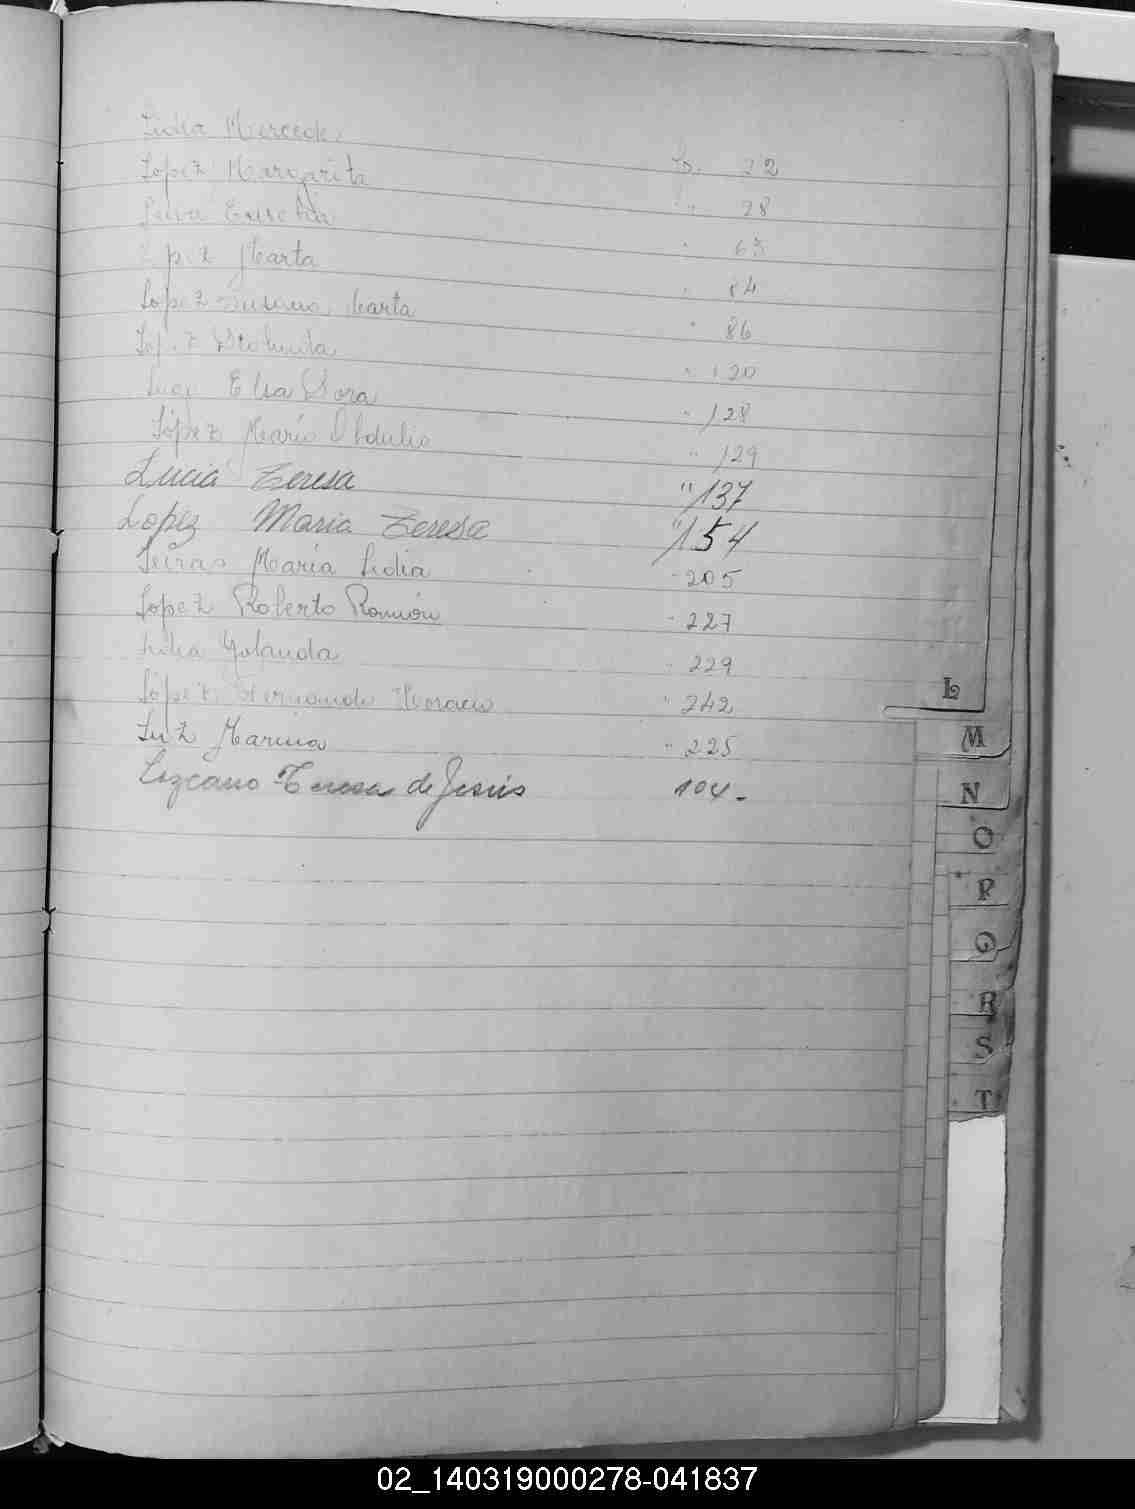 Lidia Mercedes
Lopez Margarita Fo. 22
Leiva Eusebia " 28
" 63
Lopez Marta " 84
Lopez Susana Marta " 86
Lopez " 120
Elsa Dora " 128
López Mario Obdulio " 129
Lucía Teresa " 137
Lopez Maria Teresa " 154
Leiras María Lidia " 205
Lopez Roberto Ramón " 227
Lidia Yolanda " 229
López Fernando Horacio " 242
Luz Marina " 225
Lezcano Teresa de Jesús 104.-
L
M
N
O
P
Q
R
S
T
02_140319000278-041837